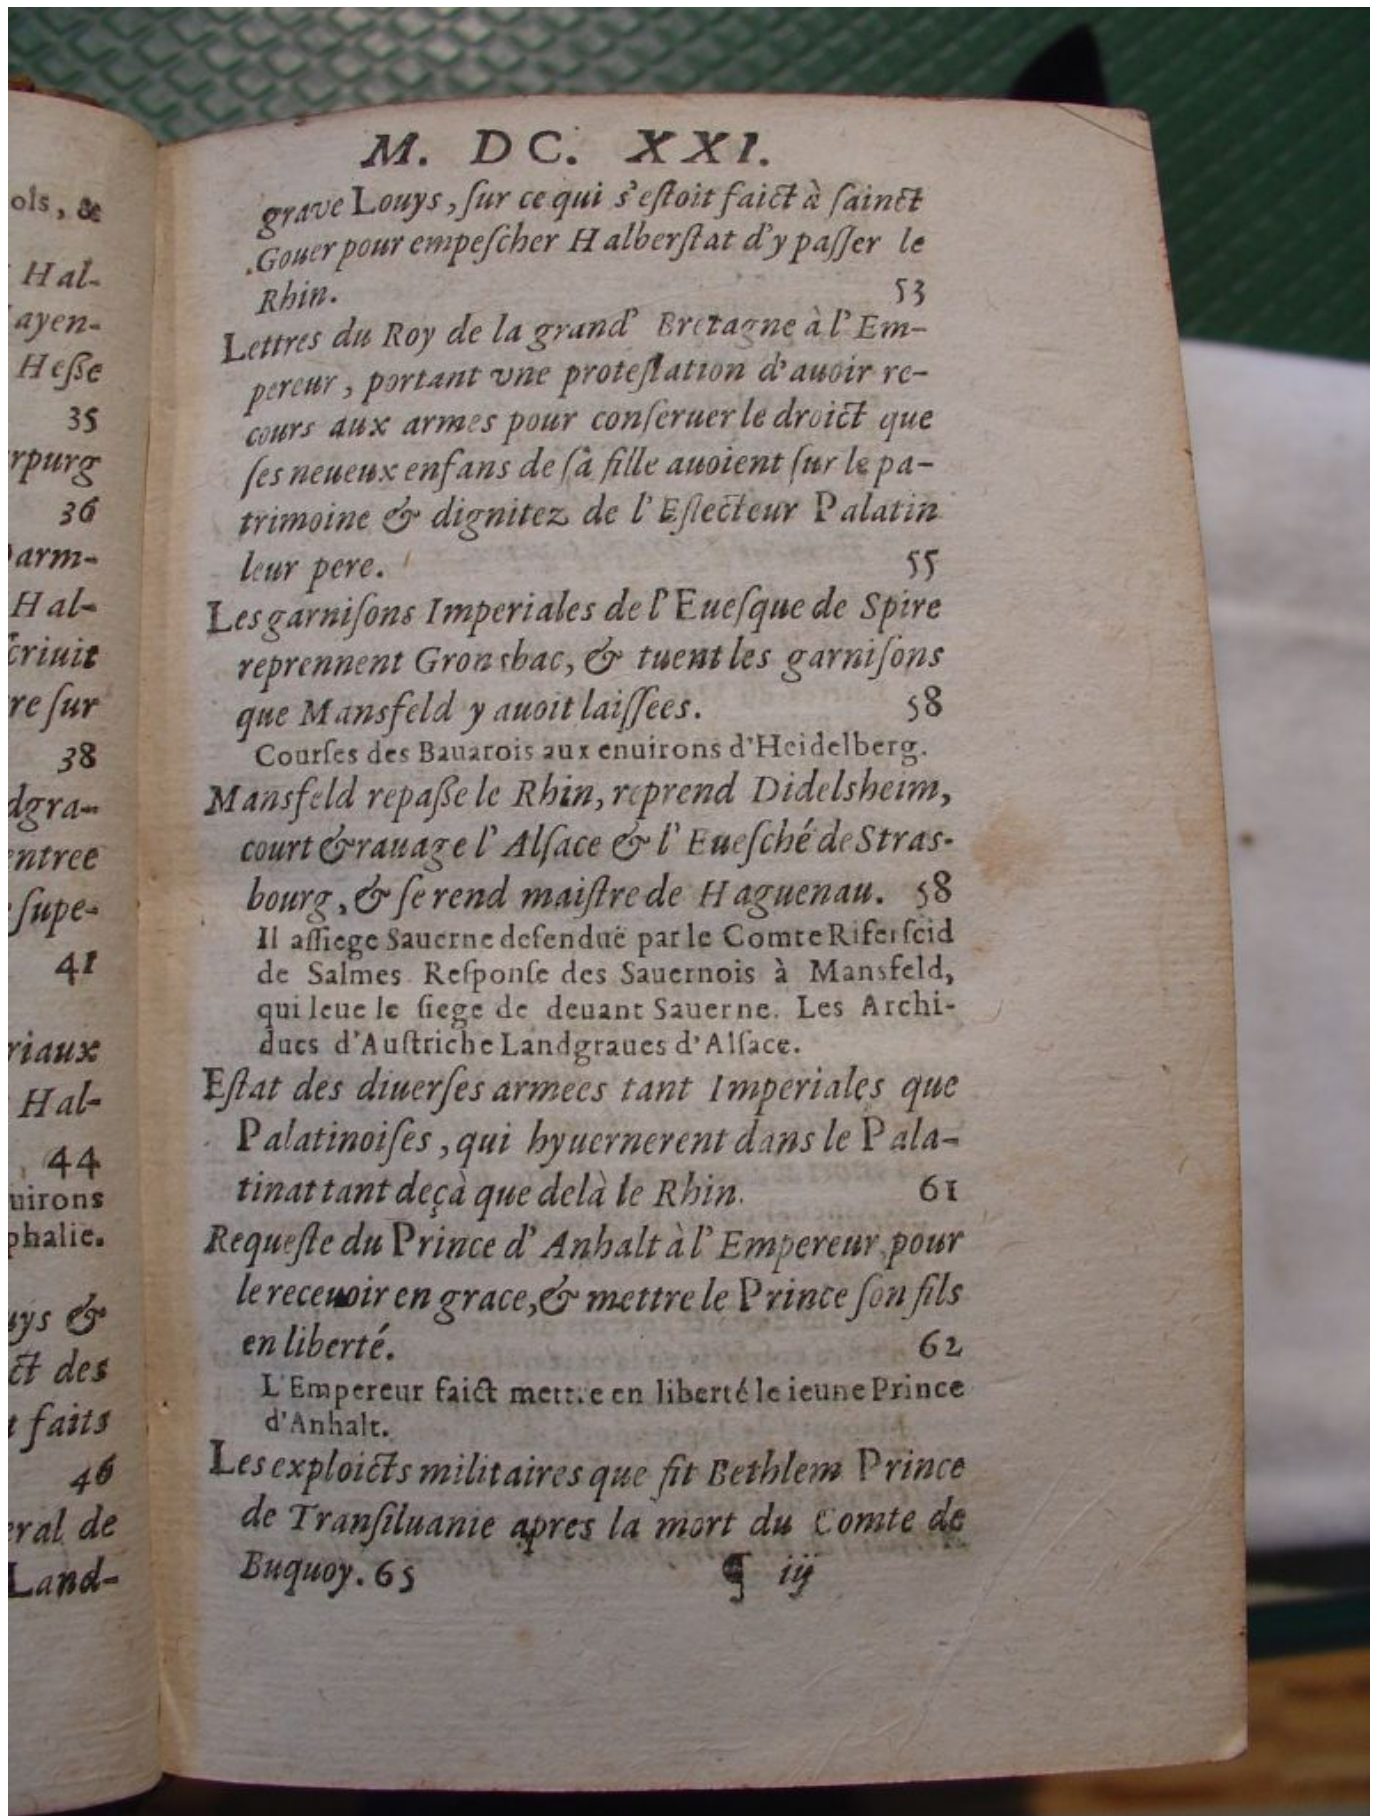 ols, &
Hal-
ayen-
Heſſe
35
rpurg
36
arm-
Hal-
criuit
re ſur
38
dgra-
entree
ſupe-
41
riaux
Hal-
44
uirons
phalie.
uys &
ct des
faits
46
eral de
Land-
M. DC. XXI.
graue Louys, ſur ce qui s'eſtoit faict à ſainct
Gouer pour empeſcher Halberſtat d'y paſſer le
Rhin. 53
Lettres du Roy de la grand' Bretagne à l'Em-
pereur, portant vne proteſtation d'auoir re-
cours aux armes pour conſeruer le droict que
ſes neueux enfans de ſa fille auoient ſur le pa-
trimoine & dignitez de l'Eſlecteur Palatin
leur pere. 55
Les garniſons Imperiales de l'Eueſque de Spire
reprennent Gronsbac, & tuent les garniſons
que Mansfeld y auoit laiſſees. 58
Courſes des Bauarois aux enuirons d'Heidelberg.
Mansfeld repaſſe le Rhin, reprend Didelsheim,
court & rauage l'Alſace & l'Eueſché de Stras-
bourg, & ſe rend maiſtre de Haguenau. 58
Il aſſiege Sauerne defenduë par le Comte Riferſcid
de Salmes. Reſponſe des Sauernois à Mansfeld,
qui leue le ſiege de deuant Sauerne. Les Archi-
ducs d'Auſtriche Landgraues d'Alſace.
Eſtat des diuerſes armees tant Imperiales que
Palatinoiſes, qui hyuernerent dans le Pala-
tinat tant deçà que delà le Rhin. 61
Requeſte du Prince d'Anhalt à l'Empereur, pour
le receuoir en grace, & mettre le Prince ſon fils
en liberté. 62
L'Empereur faict mettre en liberté le ieune Prince
d'Anhalt.
Les exploicts militaires que fit Bethlem Prince
de Tranſiluanie apres la mort du Comte de
Buquoy. 65 ¶ iij